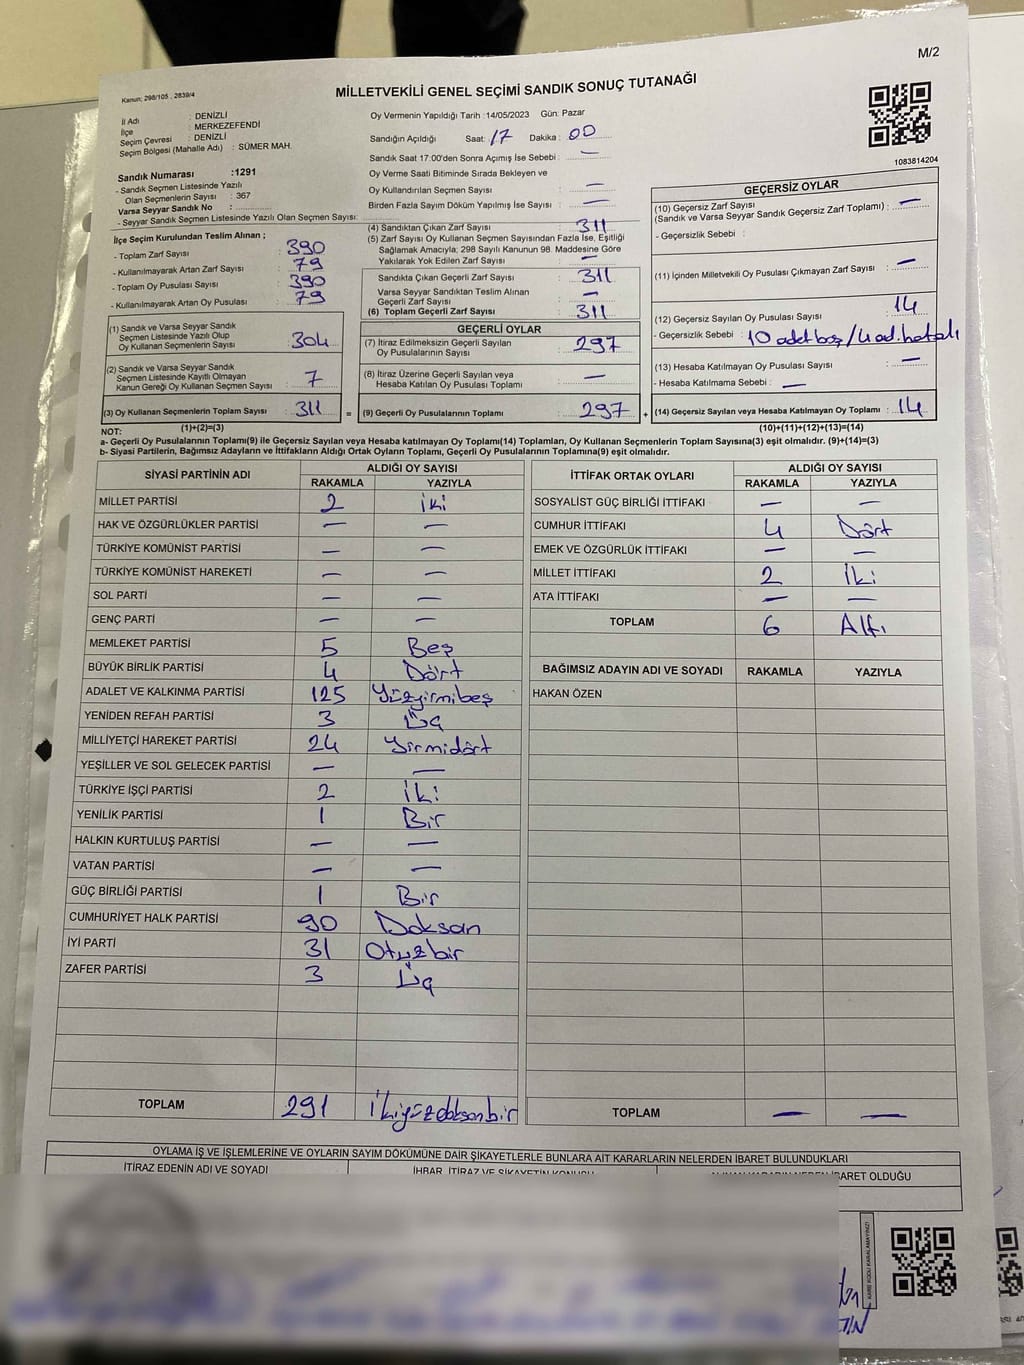 M/2
Kanun: 298/105 , 2839/4
MİLLETVEKİLİ GENEL SEÇİMİ SANDIK SONUÇ TUTANAĞI
İl Adı : DENİZLİ
İlçe : MERKEZEFENDİ
Seçim Çevresi : DENİZLİ
Seçim Bölgesi (Mahalle Adı) : SÜMER MAH.
Oy Vermenin Yapıldığı Tarih :14/05/2023 Gün: Pazar
Sandığın Açıldığı Saat: 17 Dakika : 00
Sandık Saat 17:00'den Sonra Açımış İse Sebebi : —
Oy Verme Saati Bitiminde Sırada Bekleyen ve
Oy Kullandırılan Seçmen Sayısı —
Birden Fazla Sayım Döküm Yapılmış İse Sayısı : —
1083814204
Sandık Numarası :1291
- Sandık Seçmen Listesinde Yazılı
Olan Seçmenlerin Sayısı : 367
Varsa Seyyar Sandık No :
- Seyyar Sandık Seçmen Listesinde Yazılı Olan Seçmen Sayısı:
İlçe Seçim Kurulundan Teslim Alınan ;
- Toplam Zarf Sayısı : 390
- Kullanılmayarak Artan Zarf Sayısı : 79
- Toplam Oy Pusulası Sayısı : 390
- Kullanılmayarak Artan Oy Pusulası : 79
(1) Sandık ve Varsa Seyyar Sandık
Seçmen Listesinde Yazılı Olup
Oy Kullanan Seçmenlerin Sayısı : 304
(2) Sandık ve Varsa Seyyar Sandık
Seçmen Listesinde Kayıtlı Olmayan
Kanun Gereği Oy Kullanan Seçmen Sayısı : 7
(3) Oy Kullanan Seçmenlerin Toplam Sayısı : 311
(1)+(2)=(3)
(4) Sandıktan Çıkan Zarf Sayısı : 311
(5) Zarf Sayısı Oy Kullanan Seçmen Sayısından Fazla İse, Eşitliği
Sağlamak Amacıyla; 298 Sayılı Kanunun 98. Maddesine Göre
Yakılarak Yok Edilen Zarf Sayısı : —
Sandıkta Çıkan Geçerli Zarf Sayısı : 311
Varsa Seyyar Sandıktan Teslim Alınan
Geçerli Zarf Sayısı : —
(6) Toplam Geçerli Zarf Sayısı : 311
GEÇERLİ OYLAR
(7) İtiraz Edilmeksizin Geçerli Sayılan
Oy Pusulalarının Sayısı : 297
(8) İtiraz Üzerine Geçerli Sayılan veya
Hesaba Katılan Oy Pusulası Toplamı : —
= (9) Geçerli Oy Pusulalarının Toplamı : 297
GEÇERSİZ OYLAR
(10) Geçersiz Zarf Sayısı
(Sandık ve Varsa Seyyar Sandık Geçersiz Zarf Toplamı) : —
- Geçersizlik Sebebi :
(11) İçinden Milletvekili Oy Pusulası Çıkmayan Zarf Sayısı : —
(12) Geçersiz Sayılan Oy Pusulası Sayısı : 14
- Geçersizlik Sebebi : 10 adet boş/4 ad. hatalı
(13) Hesaba Katılmayan Oy Pusulası Sayısı : —
- Hesaba Katılmama Sebebi : —
+ (14) Geçersiz Sayılan veya Hesaba Katılmayan Oy Toplamı : 14
(10)+(11)+(12)+(13)=(14)
NOT:
a- Geçerli Oy Pusulalarının Toplamı(9) ile Geçersiz Sayılan veya Hesaba katılmayan Oy Toplamı(14) Toplamları, Oy Kullanan Seçmenlerin Toplam Sayısına(3) eşit olmalıdır. (9)+(14)=(3)
b- Siyasi Partilerin, Bağımsız Adayların ve İttifakların Aldığı Ortak Oyların Toplamı, Geçerli Oy Pusulalarının Toplamına(9) eşit olmalıdır.
SİYASİ PARTİNİN ADI ALDIĞI OY SAYISI
RAKAMLA YAZIYLA
MİLLET PARTİSİ 2 İki
HAK VE ÖZGÜRLÜKLER PARTİSİ — —
TÜRKİYE KOMÜNİST PARTİSİ — —
TÜRKİYE KOMÜNİST HAREKETİ — —
SOL PARTİ — —
GENÇ PARTİ — —
MEMLEKET PARTİSİ 5 Beş
BÜYÜK BİRLİK PARTİSİ 4 Dört
ADALET VE KALKINMA PARTİSİ 125 Yüzyirmibeş
YENİDEN REFAH PARTİSİ 3 Üç
MİLLİYETÇİ HAREKET PARTİSİ 24 Yirmidört
YEŞİLLER VE SOL GELECEK PARTİSİ — —
TÜRKİYE İŞÇİ PARTİSİ 2 İki
YENİLİK PARTİSİ 1 Bir
HALKIN KURTULUŞ PARTİSİ — —
VATAN PARTİSİ — —
GÜÇ BİRLİĞİ PARTİSİ 1 Bir
CUMHURİYET HALK PARTİSİ 90 Doksan
İYİ PARTİ 31 Otuzbir
ZAFER PARTİSİ 3 Üç
TOPLAM 291 İkiyüzdoksanbir
İTTİFAK ORTAK OYLARI ALDIĞI OY SAYISI
RAKAMLA YAZIYLA
SOSYALİST GÜÇ BİRLİĞİ İTTİFAKI — —
CUMHUR İTTİFAKI 4 Dört
EMEK VE ÖZGÜRLÜK İTTİFAKI — —
MİLLET İTTİFAKI 2 İki
ATA İTTİFAKI — —
TOPLAM 6 Altı
BAĞIMSIZ ADAYIN ADI VE SOYADI RAKAMLA YAZIYLA
HAKAN ÖZEN
TOPLAM — —
OYLAMA İŞ VE İŞLEMLERİNE VE OYLARIN SAYIM DÖKÜMÜNE DAİR ŞİKAYETLERLE BUNLARA AİT KARARLARIN NELERDEN İBARET BULUNDUKLARI
İTİRAZ EDENİN ADI VE SOYADI
İHBAR, İTİRAZ VE ŞİKAYETİN KONUSU
ALINAN KARARIN NEDEN İBARET OLDUĞU
KARE KODU KARALAMAYINIZ!